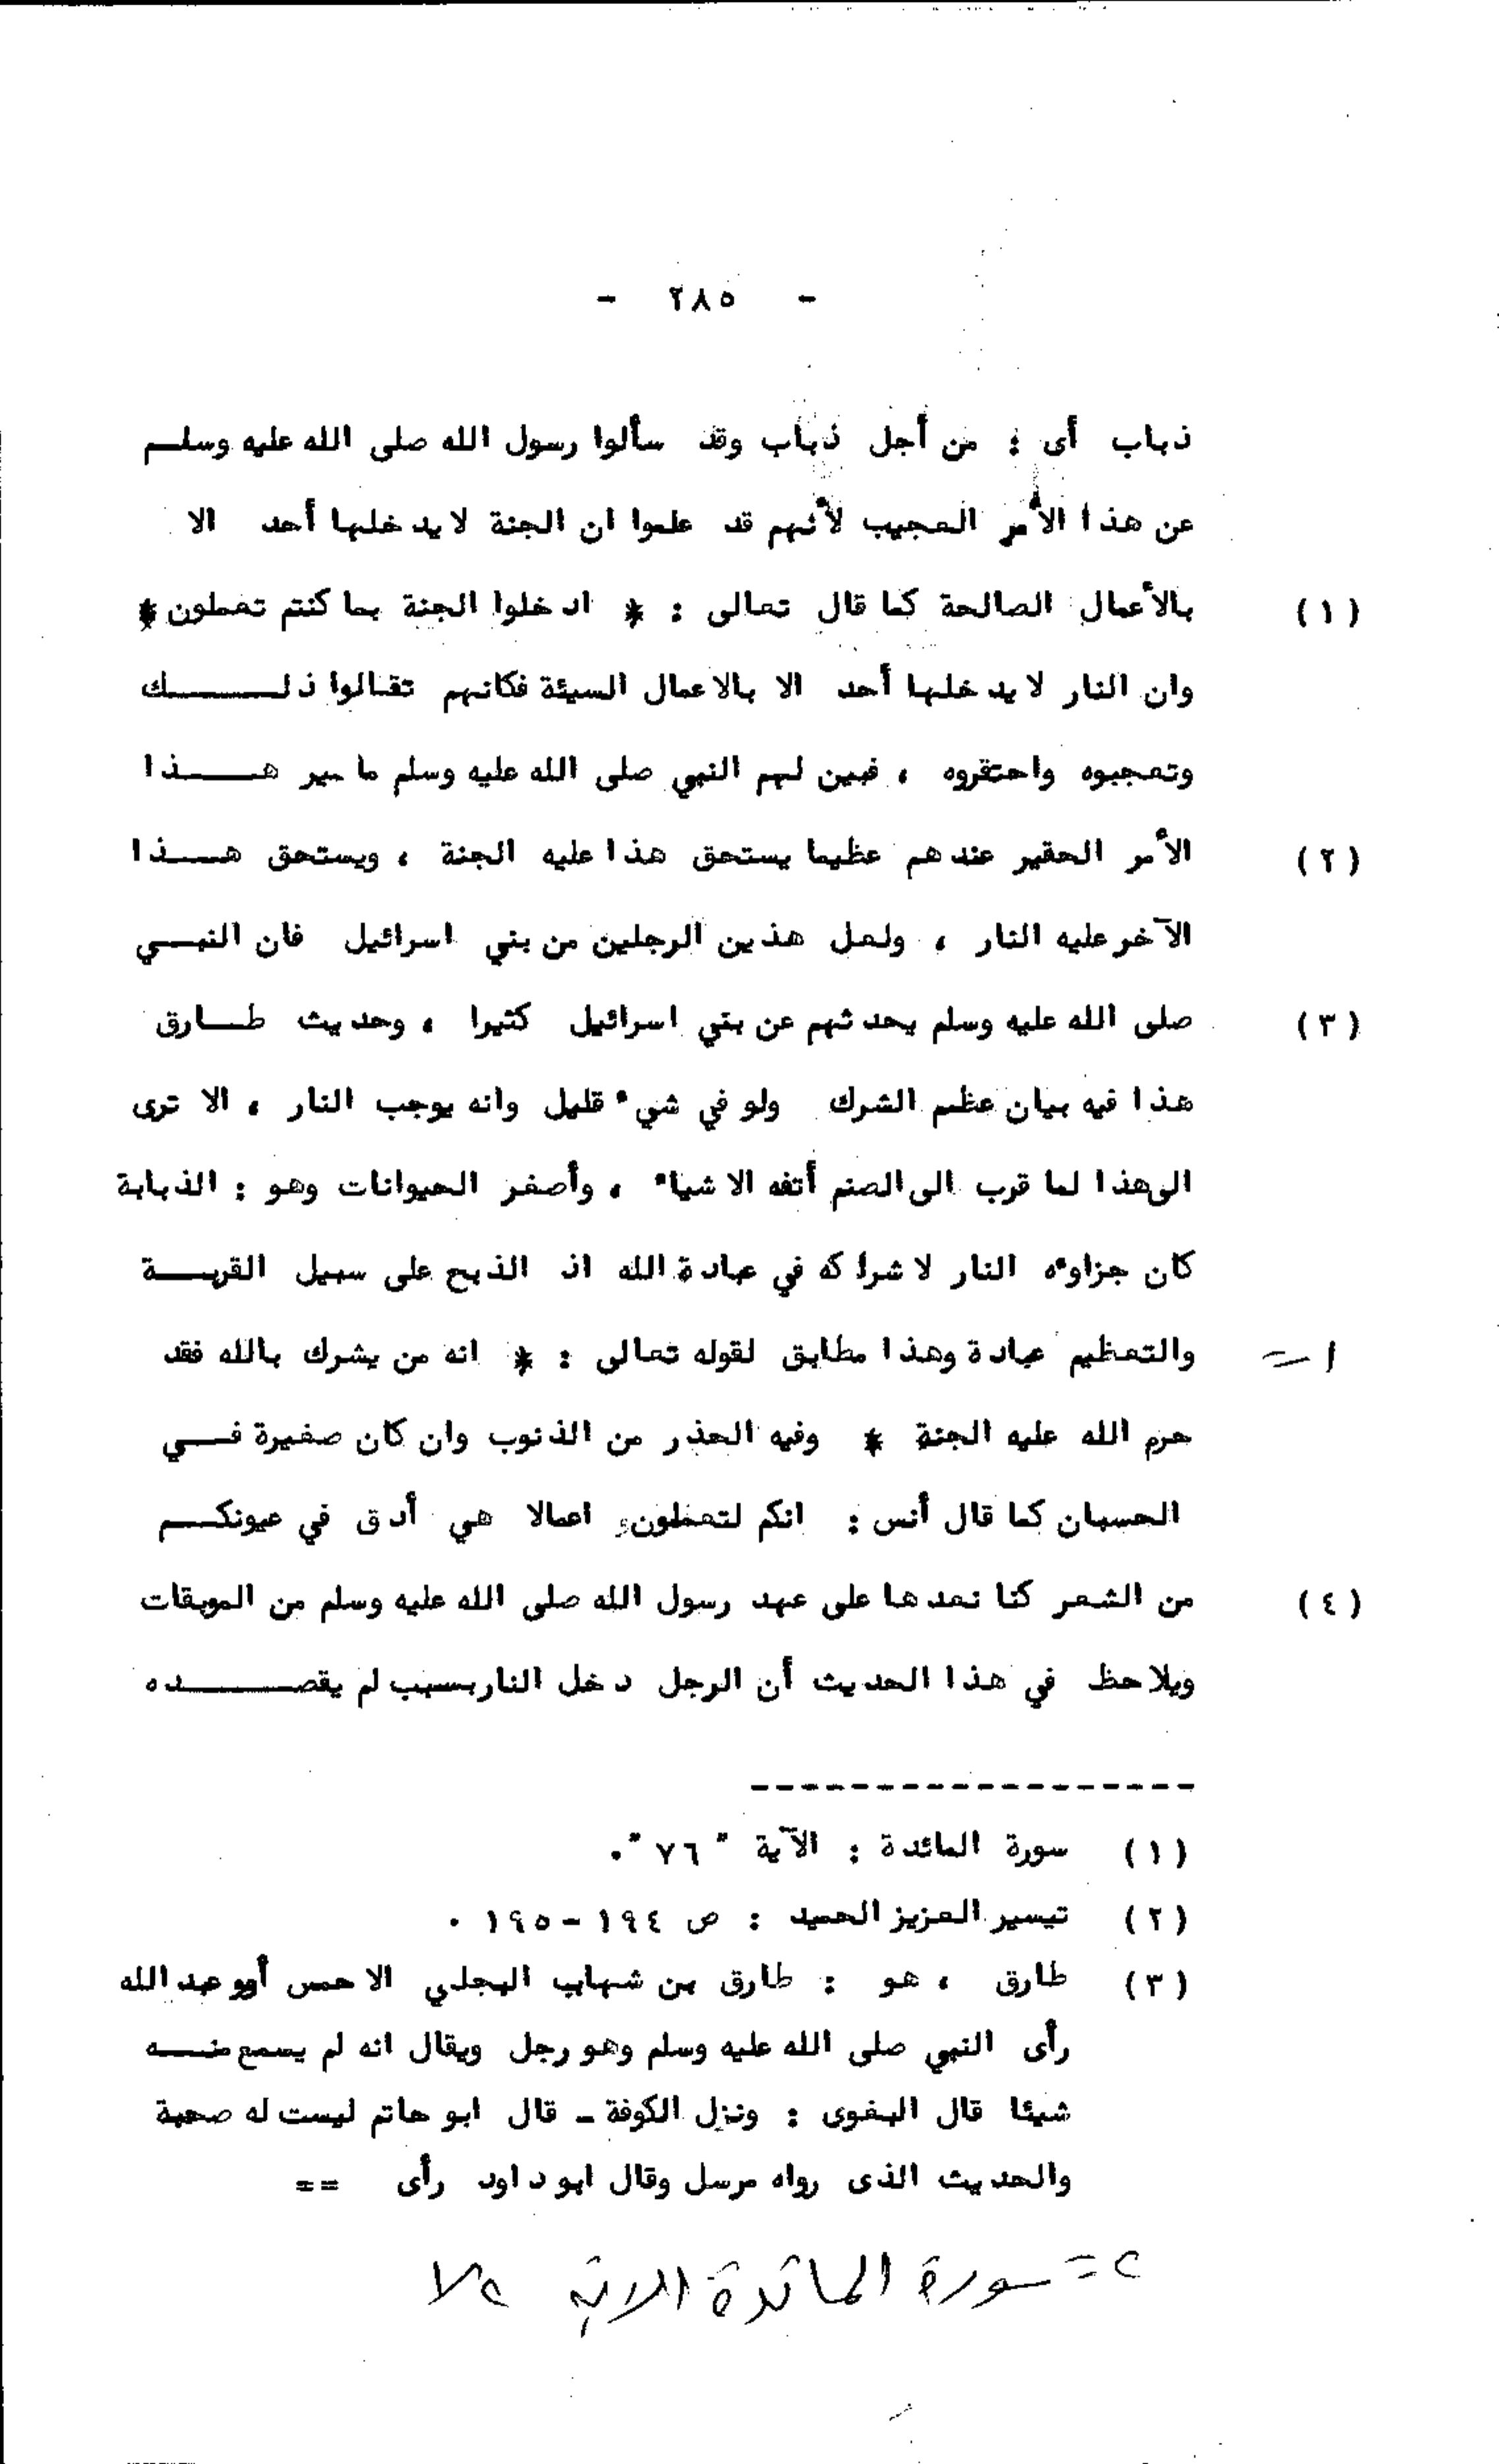 - ٢٨٥ -
ذباب أى : من أجل ذباب وقد سألوا رسول الله صلى الله عليه وسلم
عن هذا الأمر العجيب لأنهم قد علموا ان الجنة لا يدخلها أحد الا
بالأعمال الصالحة كما قال تعالى : * ادخلوا الجنة بما كنتم تعملون * (١)
وان النار لا يدخلها أحد الا بالاعمال السيئة فكانهم تقالوا ذلك
وتعجبوه واحتقروه ، فبين لهم النبي صلى الله عليه وسلم ما صير هذا
الأمر الحقير عندهم عظيما يستحق هذا عليه الجنة ، ويستحق هذا (٢)
الآخر عليه النار ، ولعل هذين الرجلين من بني اسرائيل فان النبي
صلى الله عليه وسلم يحدثهم عن بني اسرائيل كثيرا ، وحديث طارق (٣)
هذا فيه بيان عظم الشرك ولو في شيء قليل وانه يوجب النار ، الا ترى
الى هذا لما قرب الى الصنم أتفه الاشياء ، وأصغر الحيوانات وهو : الذبابة
كان جزاوءه النار لاشراكه في عبادة الله اذ الذبح على سبيل القربة
والتعظيم عبادة وهذا مطابق لقوله تعالى : * انه من يشرك بالله فقد ١ =
حرم الله عليه الجنة * وفيه الحذر من الذنوب وان كان صغيرة في
الحسبان كما قال أنس : انكم لتعملون اعمالا هي أدق في عيونكم
من الشعر كنا نعدها على عهد رسول الله صلى الله عليه وسلم من الموبقات (٤)
ويلاحظ في هذا الحديث أن الرجل دخل النار بسبب لم يقصده
(١) سورة المائدة : الآية " ٧٦ ".
(٢) تيسير العزيز الحميد : ص ١٩٤ - ١٩٥ .
(٣) طارق ، هو : طارق بن شهاب البجلي الاحمس أبو عبد الله
رأى النبي صلى الله عليه وسلم وهو رجل ويقال انه لم يسمع منه
شيئا قال البغوى : ونزل الكوفة - قال ابو حاتم ليست له صحبة
والحديث الذى رواه مرسل وقال ابو داود رأى ==
٢ = سورة المائدة الاية ٧٢